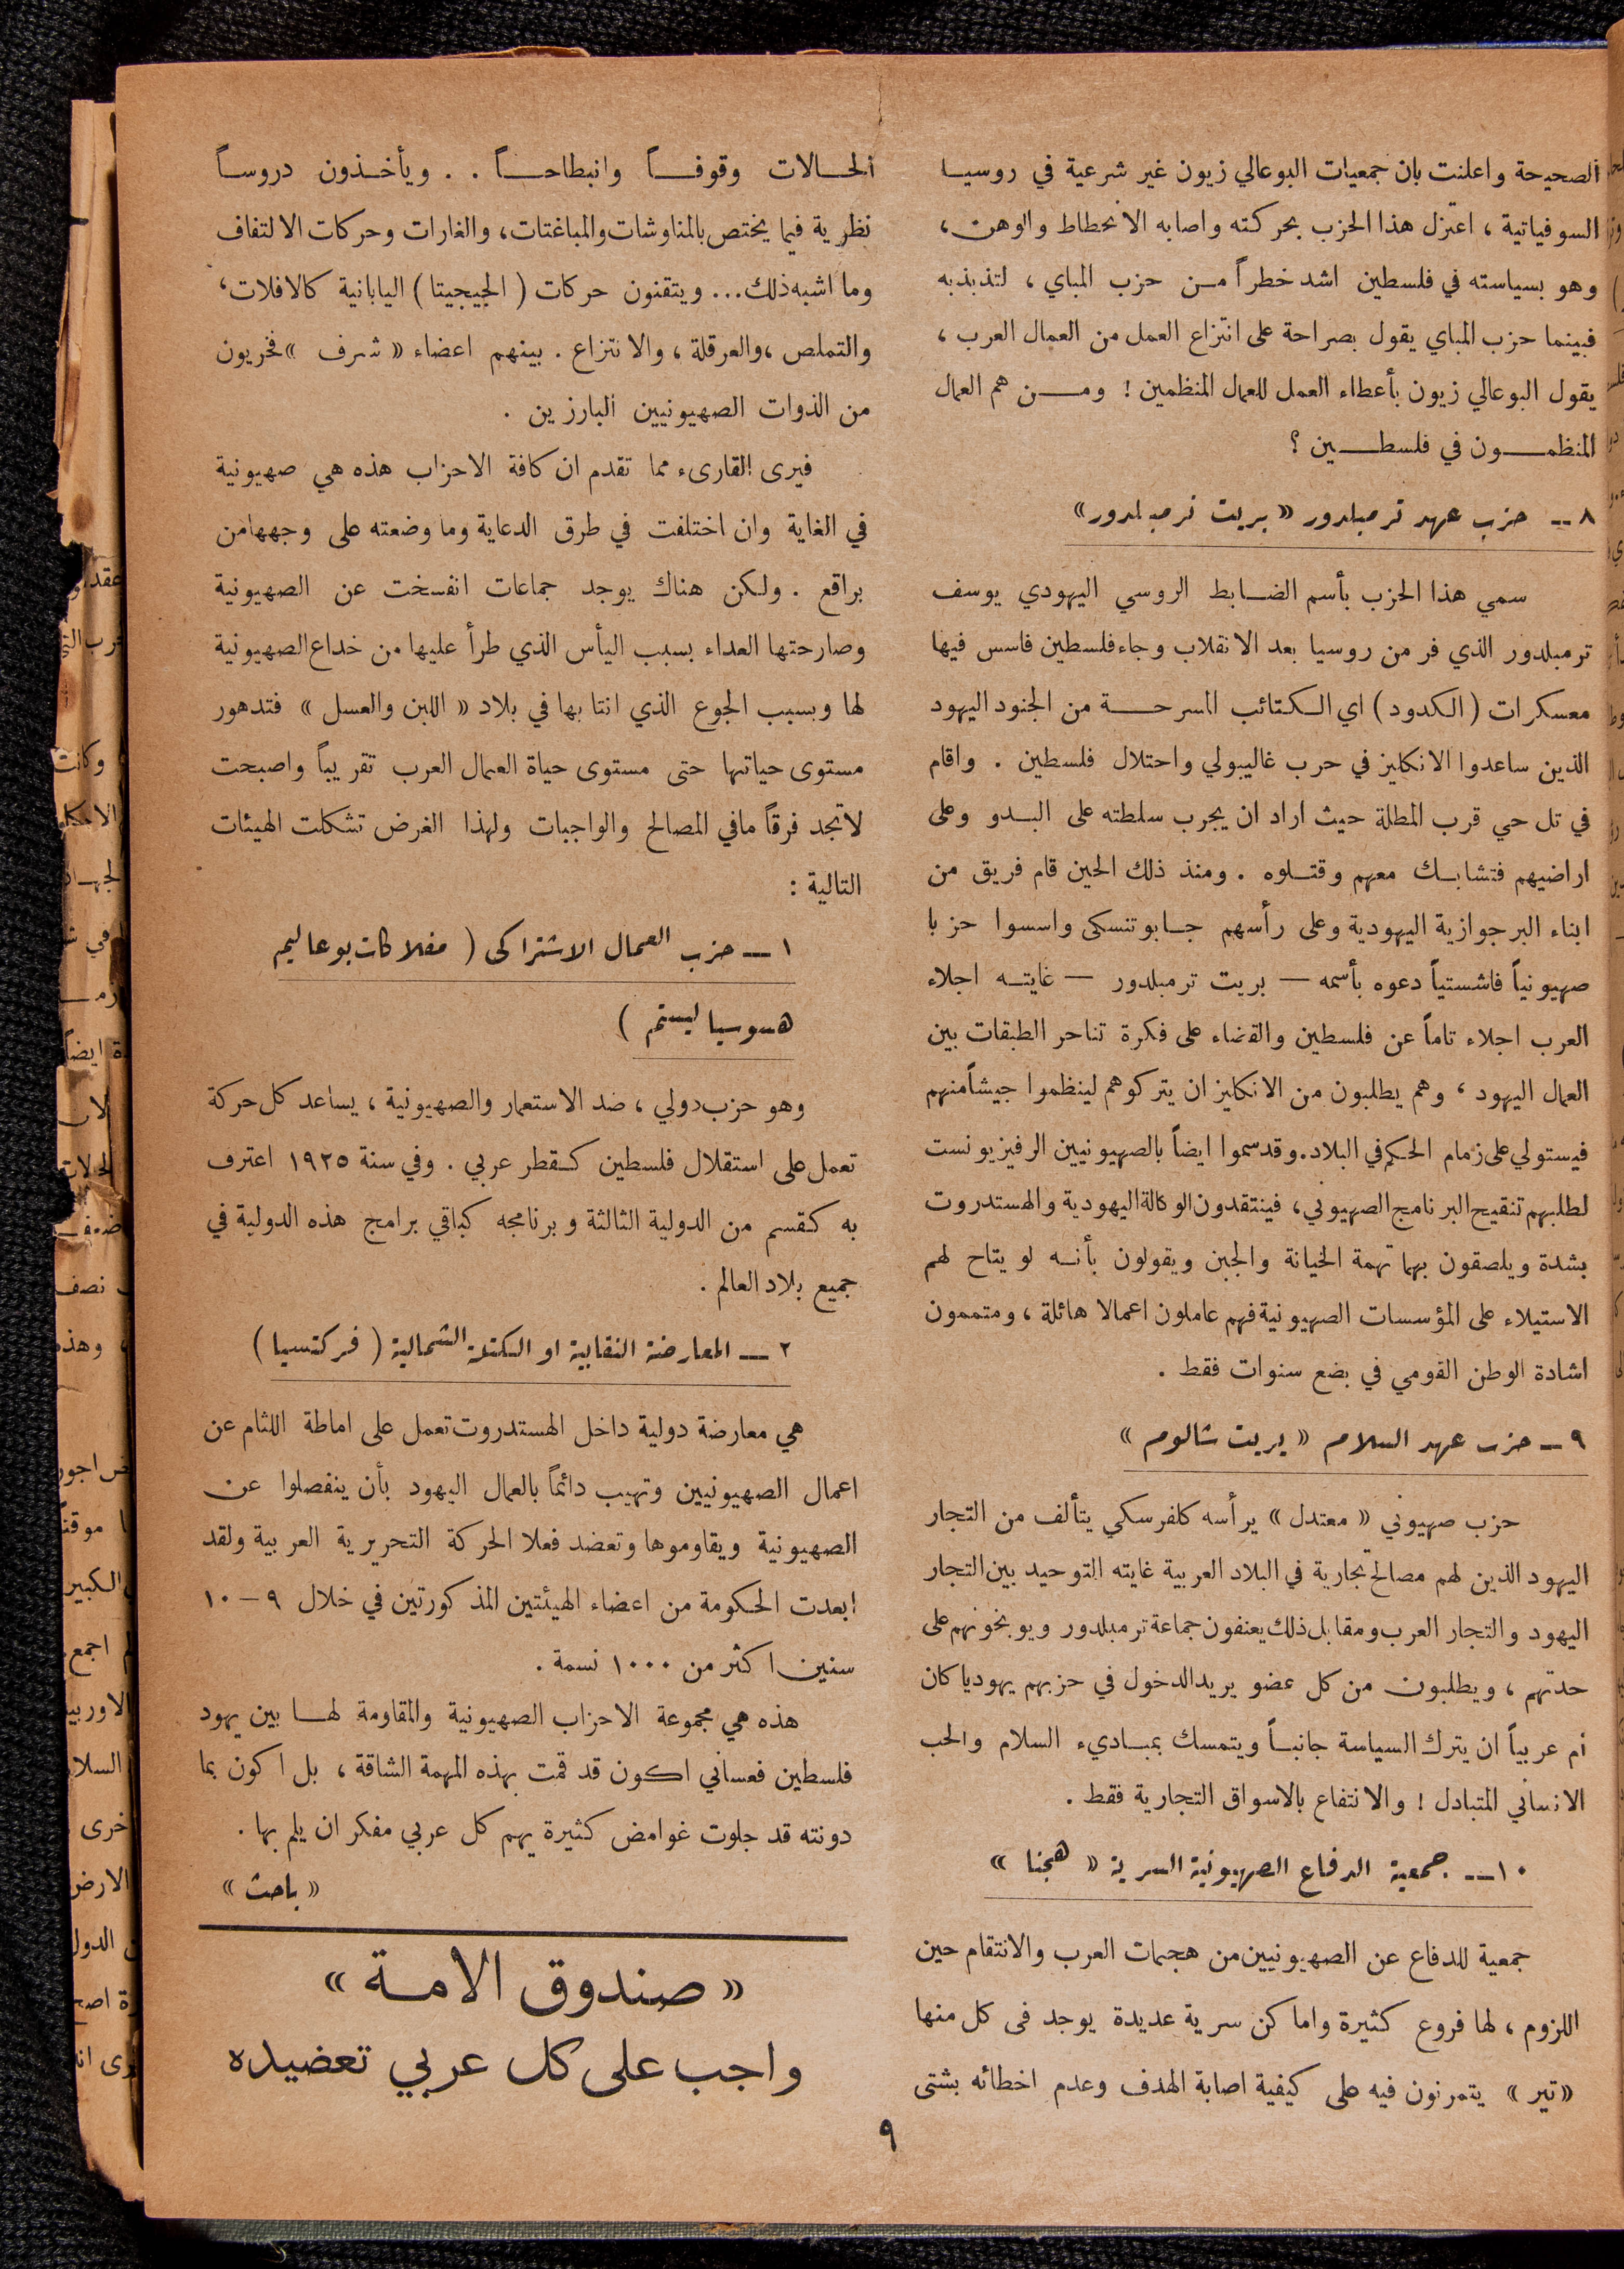 الصحيحة واعلنت بان جمعيات البوعالي زيون غير شرعية في روسيا
السوفياتية ، اعتزل هذا الحزب بحركته واصابه الانحطاط والوهن ،
وهو بسياسته في فلسطين اشد خطراً من حزب المباي ، لتذبذبه
فبينما حزب المباي يقول بصراحة على انتزاع العمل من العمال العرب ،
يقول البوعالي زيون بأعطاء العمل للعمال المنظمين ! ومن هم العمال
المنظمون في فلسطين ؟
٨ — حزب عهد ترمبلدور « بريت ترمبلدور »
سمي هذا الحزب بأسم الضابط الروسي اليهودي يوسف
ترمبلدور الذي فر من روسيا بعد الانقلاب وجاء فلسطين فاسس فيها
معسكرات ( الكدود ) اي الكتائب المسرحة من الجنود اليهود
الذين ساعدوا الانكليز في حرب غاليبولي واحتلال فلسطين . واقام
في تل حي قرب المطلة حيث اراد ان يجرب سلطته على البدو وعلى
اراضيهم فتشابك معهم وقتلوه . ومنذ ذلك الحين قام فريق من
ابناء البرجوازية اليهودية وعلى رأسهم جابوتنسكى واسسوا حزبا
صهيونياً فاشستياً دعوه بأسمه — بريت ترمبلدور — غايته اجلاء
العرب اجلاء تاماً عن فلسطين والقضاء على فكرة تناحر الطبقات بين
العمال اليهود ، وهم يطلبون من الانكليز ان يتركوهم لينظموا جيشاً منهم
فيستولي على زمام الحكم في البلاد. وقد سموا ايضاً بالصهيونيين الرفيزيونست
لطلبهم تنقيح البرنامج الصهيوني ، فينتقدون الوكالة اليهودية والهستدروت
بشدة ويلصقون بهما تهمة الخيانة والجبن ويقولون بأنه لو يتاح لهم
الاستيلاء على المؤسسات الصهيونية فهم عاملون اعمالا هائلة ، ومتممون
اشادة الوطن القومي في بضع سنوات فقط .
٩ — حزب عهد السلام « بريت شالوم »
حزب صهيوني « معتدل » يرأسه كلفرسكي يتألف من التجار
اليهود الذين لهم مصالح تجارية في البلاد العربية غايته التوحيد بين التجار
اليهود والتجار العرب ومقابل ذلك يعنفون جماعة ترمبلدور ويوبخونهم على
حدتهم ، ويطلبون من كل عضو يريد الدخول في حزبهم يهوديا كان
أم عربياً ان يترك السياسة جانباً ويتمسك بمباديء السلام والحب
الانساني المتبادل ! والانتفاع بالاسواق التجارية فقط .
١٠ — جمعية الدفاع الصهيونية السرية « هجنا »
جمعية للدفاع عن الصهيونيين من هجمات العرب والانتقام حين
اللزوم ، لها فروع كثيرة واماكن سرية عديدة يوجد فى كل منها
« تير » يتمرنون فيه على كيفية اصابة الهدف وعدم اخطائه بشتى
الحالات وقوفاً وانبطاحاً . . ويأخذون دروساً
نظرية فيما يختص بالمناوشات والمباغتات ، والغارات وحركات الالتفاف
وما اشبه ذلك ... ويتقنون حركات ( الجيجيتا ) اليابانية كالافلات ،
والتملص ، والعرقلة ، والانتزاع . بينهم اعضاء « شرف » فخريون
من الذوات الصهيونيين البارزين .
فيرى القارىء مما تقدم ان كافة الاحزاب هذه هي صهيونية
في الغاية وان اختلفت في طرق الدعاية وما وضعته على وجهها من
براقع . ولكن هناك يوجد جماعات انفسخت عن الصهيونية
وصارحتها العداء بسبب اليأس الذي طرأ عليها من خداع الصهيونية
لها وبسبب الجوع الذي انتابها في بلاد « اللبن والعسل » فتدهور
مستوى حياتها حتى مستوى حياة العمال العرب تقريباً واصبحت
لا تجد فرقاً ما في المصالح والواجبات ولهذا الغرض تشكلت الهيئات
التالية :
١ — حزب العمال الاشتراكى ( مفلاكات بوعاليم
هسوسياليستم )
وهو حزب دولي ، ضد الاستعمار والصهيونية ، يساعد كل حركة
تعمل على استقلال فلسطين كقطر عربي . وفي سنة ١٩٢٥ اعترف
به كقسم من الدولية الثالثة وبرنامجه كباقي برامج هذه الدولية في
جميع بلاد العالم .
٢ — المعارضة النقابية او الكتلة الشمالية ( فركتسيا )
هي معارضة دولية داخل الهستدروت تعمل على اماطة اللثام عن
اعمال الصهيونيين وتهيب دائماً بالعمال اليهود بأن ينفصلوا عن
الصهيونية ويقاوموها وتعضد فعلا الحركة التحريرية العربية ولقد
ابعدت الحكومة من اعضاء الهيئتين المذكورتين في خلال ٩ – ١٠
سنين اكثر من ١٠٠٠ نسمة .
هذه هي مجموعة الاحزاب الصهيونية والمقاومة لها بين يهود
فلسطين فعساني اكون قد قمت بهذه المهمة الشاقة ، بل اكون بما
دونته قد جلوت غوامض كثيرة يهم كل عربي مفكر ان يلم بها .
« باحث »
« صندوق الامة »
واجب على كل عربي تعضيده
٩